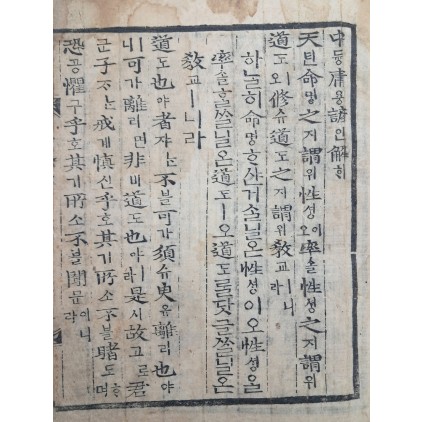 中듕庸용諺언解ᄒᆡ
天텬命명之지謂위性셩이오率솔性셩之지謂위
道도ㅣ오修슈道도之지謂위敎교ㅣ니라
하ᄂᆞᆯ히命명ᄒᆞ샨거슬닐온性셩이오性셩을
率솔ᄒᆞᆯᄡᅳᆯ닐온道도ㅣ오道도ᄅᆞᆯ닷글ᄡᅳᆯ닐온
敎교ㅣ니라
道도也야者쟈ᄂᆞᆫ不블可가須슈臾유離리也야
ㅣ니可가離리면非비道도也야ㅣ라是시故고로君
군子ᄌᆞᄂᆞᆫ戒계愼신乎호其기所소不블睹도ᄒᆞ며
恐공懼구乎호其기所소不블聞문이니라